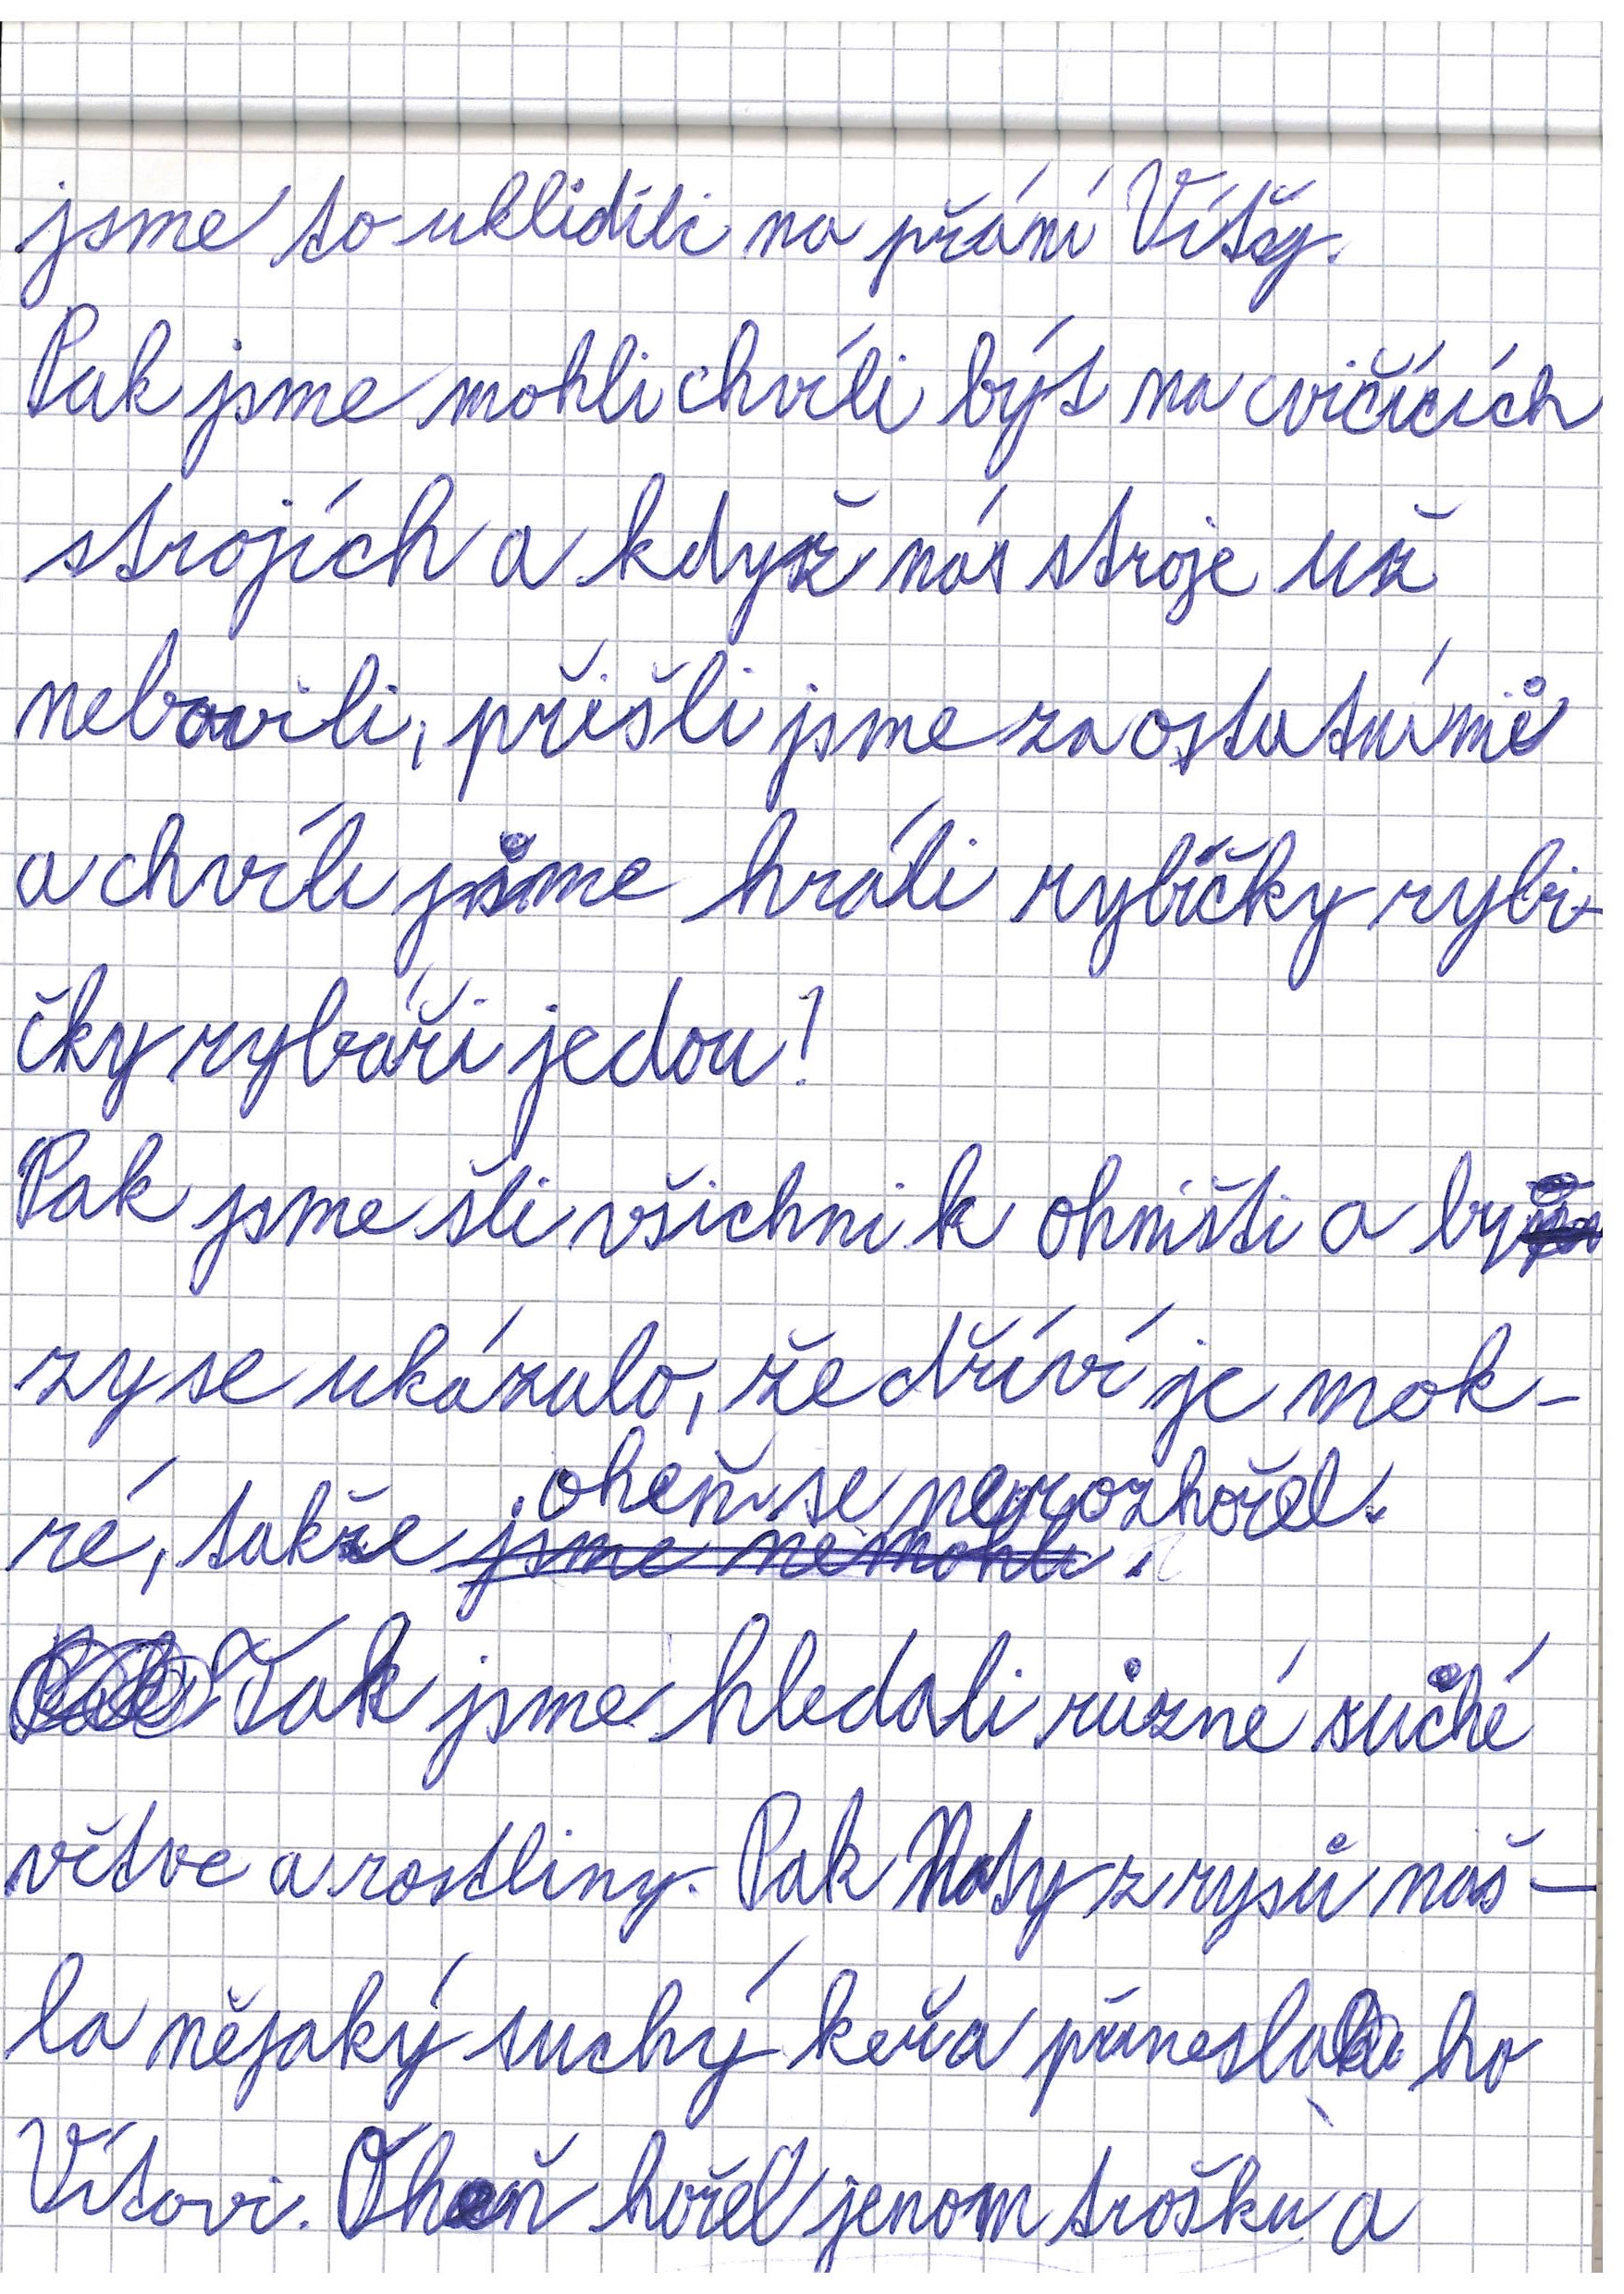 jsme to uklidili na přání Víťy.
Pak jsme mohli chvíli být na cvičících
strojích a když nás stroje už
nebavili, přišli jsme za ostatními
a chvíli jsme hráli rybičky rybi-
čky rybáři jedou!
Pak jsme šli všichni k ohništi a br
zy se ukázalo, že dříví je mok-
oheň se nerozhořel.
ré, takže jsme nemohli.
Tak jsme hledali různé suché
větve a rostliny. Pak Naty z rysů naš-
la nějaký suchý keř a přinesla ho
Vítovi. Oheň hořel jenom trošku a